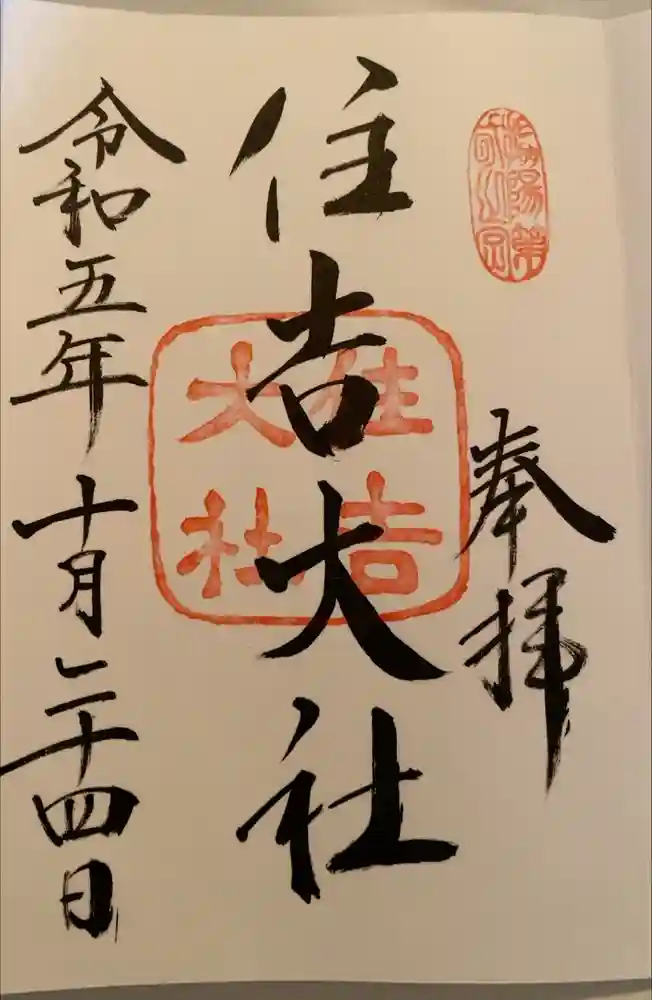 奉拝
住吉大社
住吉
大社
令和五年十月二十四日